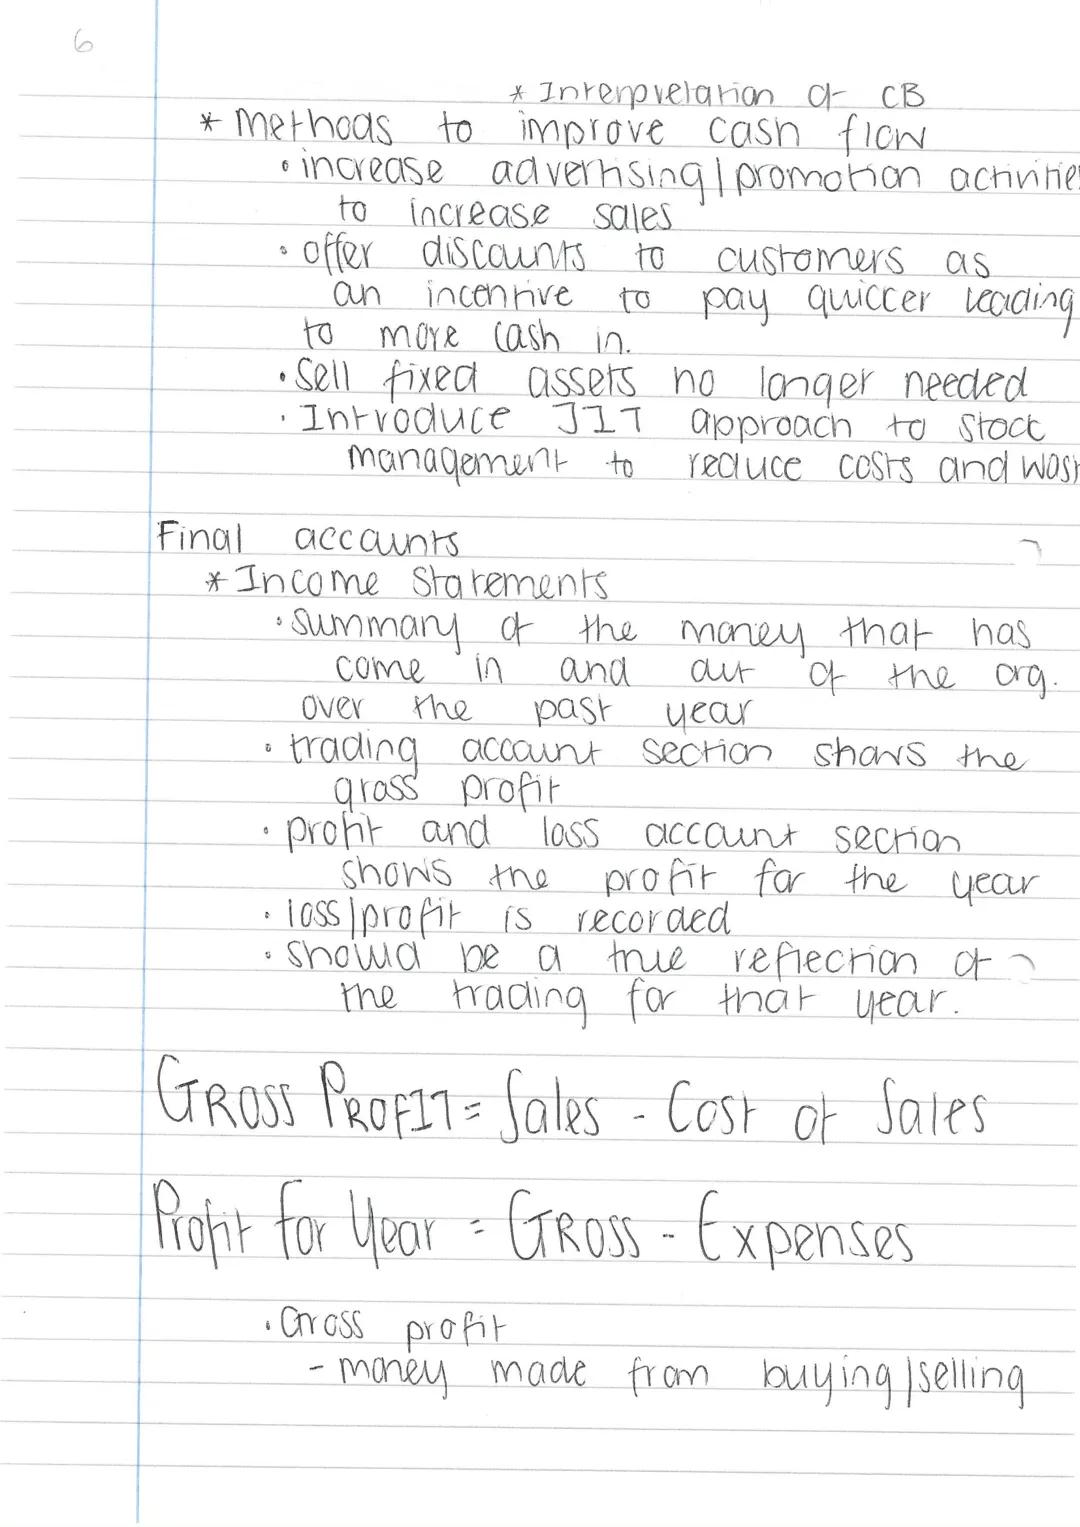 6
* Interpretation of CB
* methods to improve cash flow
• increase advertising/promotion activities
to increase sales
• offer discounts to customers as
an incentive to pay quiccer leading
to more cash in.
• Sell fixed assets no longer needed
• Introduce JIT approach to stock
management to reduce costs and wast
Final accounts
* Income Statements
• summary of the money that has
come in and out of the org.
over the past year
• trading account section shows the
gross profit
• profit and loss account section
shows the profit for the year
• loss/profit is recorded
• should be a true reflection of
the trading for that year.
GROSS PROFIT = Sales - Cost of Sales
Profit for Year = GROSS - Expenses
• Gross profit
- money made from buying/selling